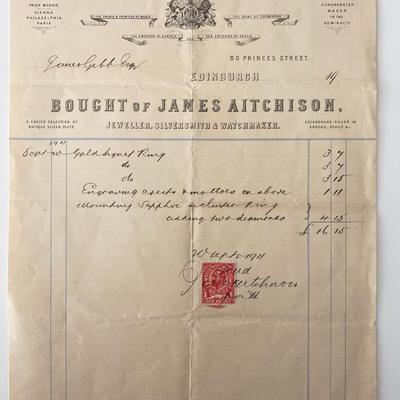 PRIZE MEDALS
VIENNA
PHILADELPHIA
PARIS
THE PRINCE & PRINCESS OF WALES
THE DUKE OF EDINBURGH
THE EMPEROR OF AUSTRIA
AND
THE EMPEROR OF BRAZIL
CHRONOMETER
MAKER
TO THE
ADMIRALTY
James Gibb Esq
80 PRINCES STREET.
EDINBURGH 19
BOUGHT OF JAMES AITCHISON,
A CHOICE SELECTION OF
ANTIQUE SILVER PLATE
JEWELLER, SILVERSMITH & WATCHMAKER.
SECONDHAND SILVER IN
SPOONS, FORKS &c.
1911
Gold Signet Ring 3 7
do 3 7
do 3 15
Engraving crests & mottoes on above 1 11
Mounting Sapphire in cluster Ring
adding two diamonds 4 15
£ 16 15
1911